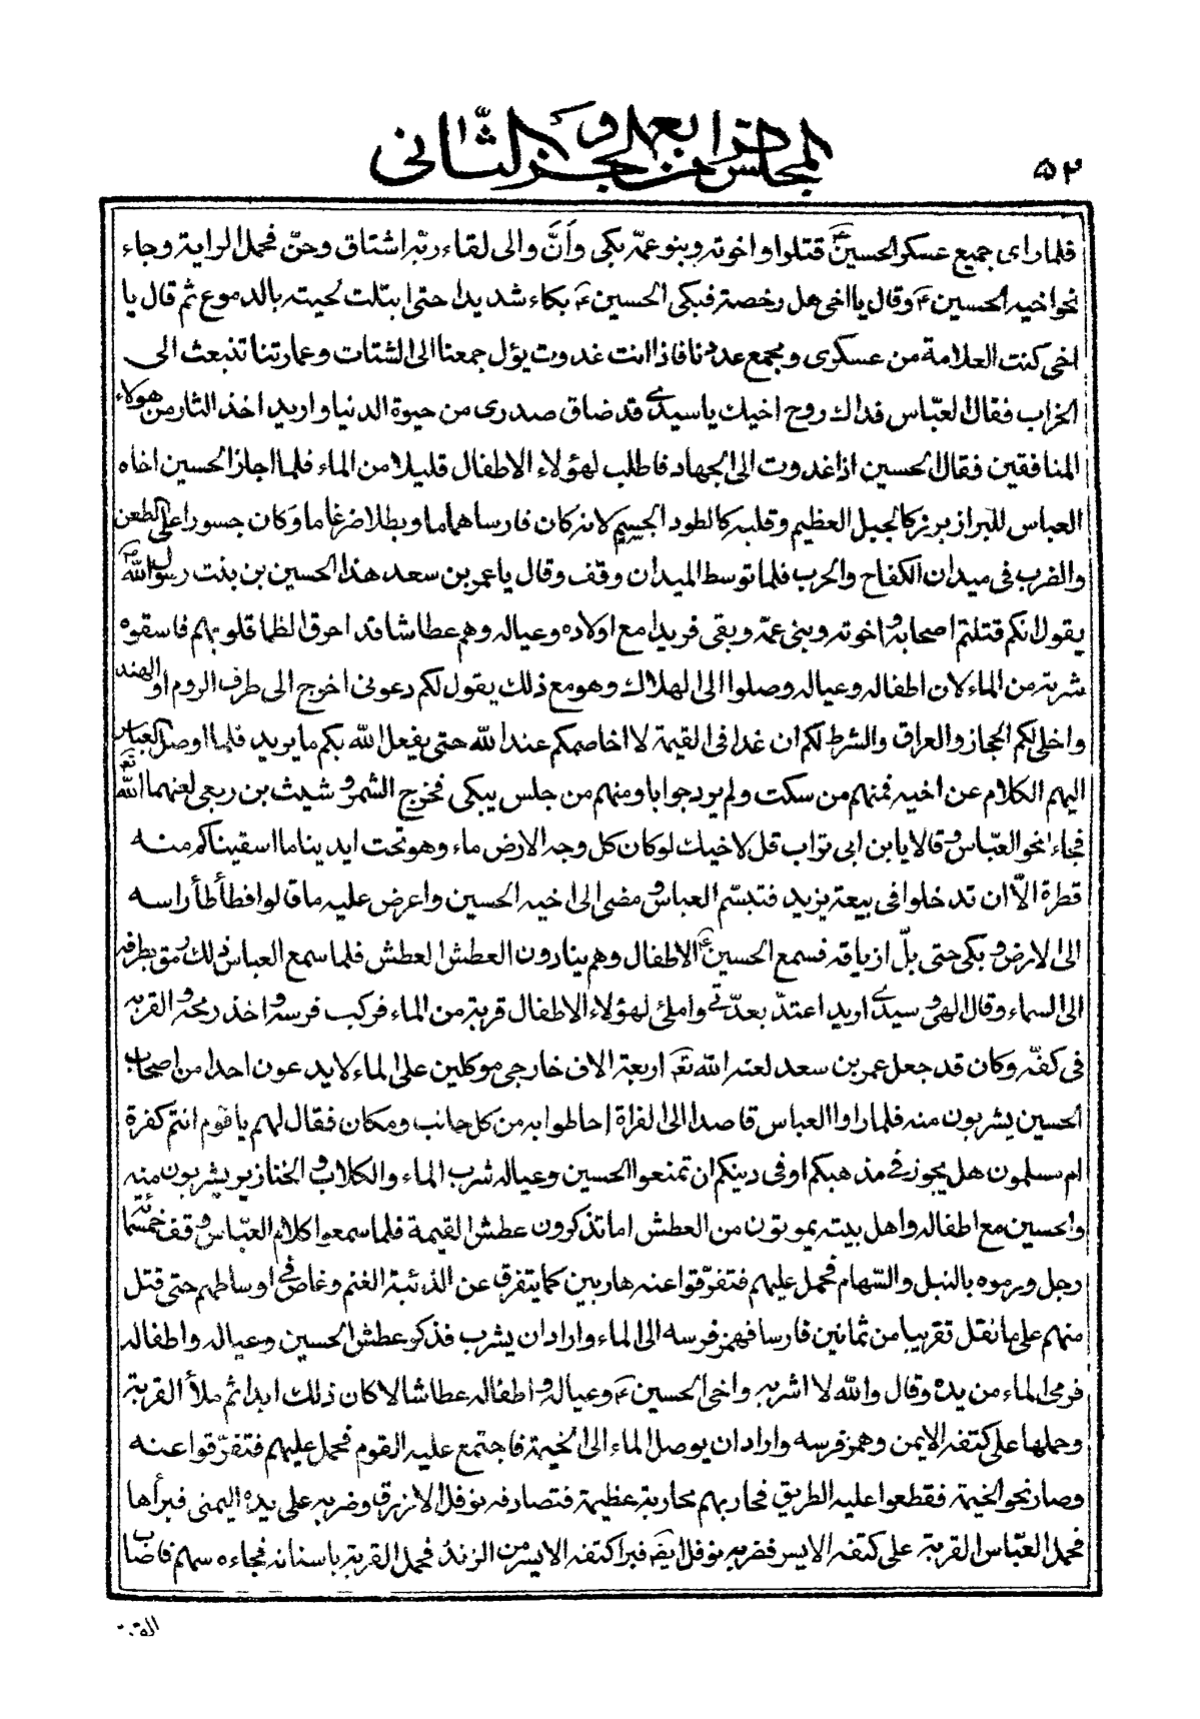 ٥٢
المجلس الرابع من الجزء الثانى
فلما راى جميع عسكر الحسين ع قتلوا واخوته وبنو عمّه بكى وَاَنَّ والى لقاء ربّه اشتاق وحنّ فحمل الراية وجاء
نحو اخيه الحسين ع وقال يا اخى هل رخصة فبكى الحسين ع بكاء شديدا حتى ابتلت لحيته بالدموع ثم قال يا
اخى كنت العلامة من عسكرى ومجمع عددنا فاذا انت غدوت يؤل جمعنا الى الشتات وعمارتنا تنبعث الى
الخراب فقال العبّاس فداك روح اخيك يا سيدى قد ضاق صدرى من حيوة الدنيا واريد اخذ الثار من هولاء
المنافقين فقال الحسين اذا غدوت الى الجهاد فاطلب لهؤلاء الاطفال قليلا من الماء فلما اجاز الحسين اخاه
العباس للبراز برز كالجبل العظيم وقلبه كالطود الجسيم لانه كان فارسا هماما وبطلا ضرغاما وكان جسورا على الطعن
والضرب فى ميدان الكفاح والحرب فلما توسط الميدان وقف وقال يا عمر بن سعد هذا الحسين بن بنت رسول الله ص
يقول انكم قتلتم اصحابه واخوته وبنى عمّه وبقى فريدا مع اولاده وعياله وهم عطاشا قد احرق الظما قلوبهم فاسقوه
شربة من الماء لان اطفاله وعياله وصلوا الى الهلاك وهو مع ذلك يقول لكم دعونى اخرج الى طرف الروم او الهند
واخلى لكم الحجاز والعراق والشرط لكم ان غدا فى القيمة لا اخاصمكم عند الله حتى يفعل الله بكم ما يريد فلما اوصل العباس
اليهم الكلام عن اخيه فمنهم من سكت ولم يرد جوابا ومنهم من جلس يبكى فخرج الشمر وشيث بن ربعى لعنهما الله تع
فجاء نحو العبّاس وقالا يابن ابى تراب قل لاخيك لو كان كل وجه الارض ماء وهو تحت ايدينا ما اسقيناكم منه
قطرة الاّ ان تدخلوا فى بيعة يزيد فتبسّم العباس ومضى الى اخيه الحسين واعرض عليه ما قالوا فطأطأ راسه
الى الارض وبكى حتى بلّ ازياقه فسمع الحسين ع الاطفال وهم ينادون العطش العطش فلما سمع العباس ذلك رمق بطرفه
الى السماء وقال الهى وسيدى اريد اعتدّ بعدّتى واملئ لهؤلاء الاطفال قربة من الماء فركب فرسه واخذ رمحه والقربة
فى كفّه وكان قد جعل عمر بن سعد لعنه الله تع اربعة الاف خارجى موكلين على الماء لا يدعون احدا من اصحاب
الحسين يشربون منه فلما راوا العباس قاصدا الى الفراة احاطوا به من كل جانب ومكان فقال لهم يا قوم انتم كفرة
ام مسلمون هل يجوز فى مذهبكم او فى دينكم ان تمنعوا الحسين وعياله شرب الماء والكلاب والخنازير يشربون منه
والحسين مع اطفاله واهل بيته يموتون من العطش اما تذكرون عطش القيمة فلما سمعوا كلام العبّاس وقف خمسمائة
رجل ورموه بالنبل والسّهام فحمل عليهم فتفرّقوا عنه هاربين كما يتفرق عن الذئبة الغنم وغاص فى اوساطهم حتى قتل
منهم على ما نقل تقريبا من ثمانين فارسا فهمز فرسه الى الماء واراد ان يشرب فذكر عطش الحسين وعياله واطفاله
فرمى الماء من يده وقال والله لا اشربه واخى الحسين ع وعياله واطفاله عطاشا لا كان ذلك ابدا ثم ملأ القربة
وحملها على كتفه الايمن وهمز فرسه واراد ان يوصل الماء الى الخيمة فاجتمع عليه القوم فحمل عليهم فتفرّقوا عنه
وصار نحو الخيمة فقطعوا عليه الطريق فحاربهم محاربة عظيمة فتصادفه نوفل الازرق وضربه على يده اليمنى فبرأها
فحمل العبّاس القربة على كتفه الايسر فضربه نوفل ايضا فبرا كتفه الايسر من الزند فحمل القربة باسنانه فجاءه سهم فاصاب
القربة